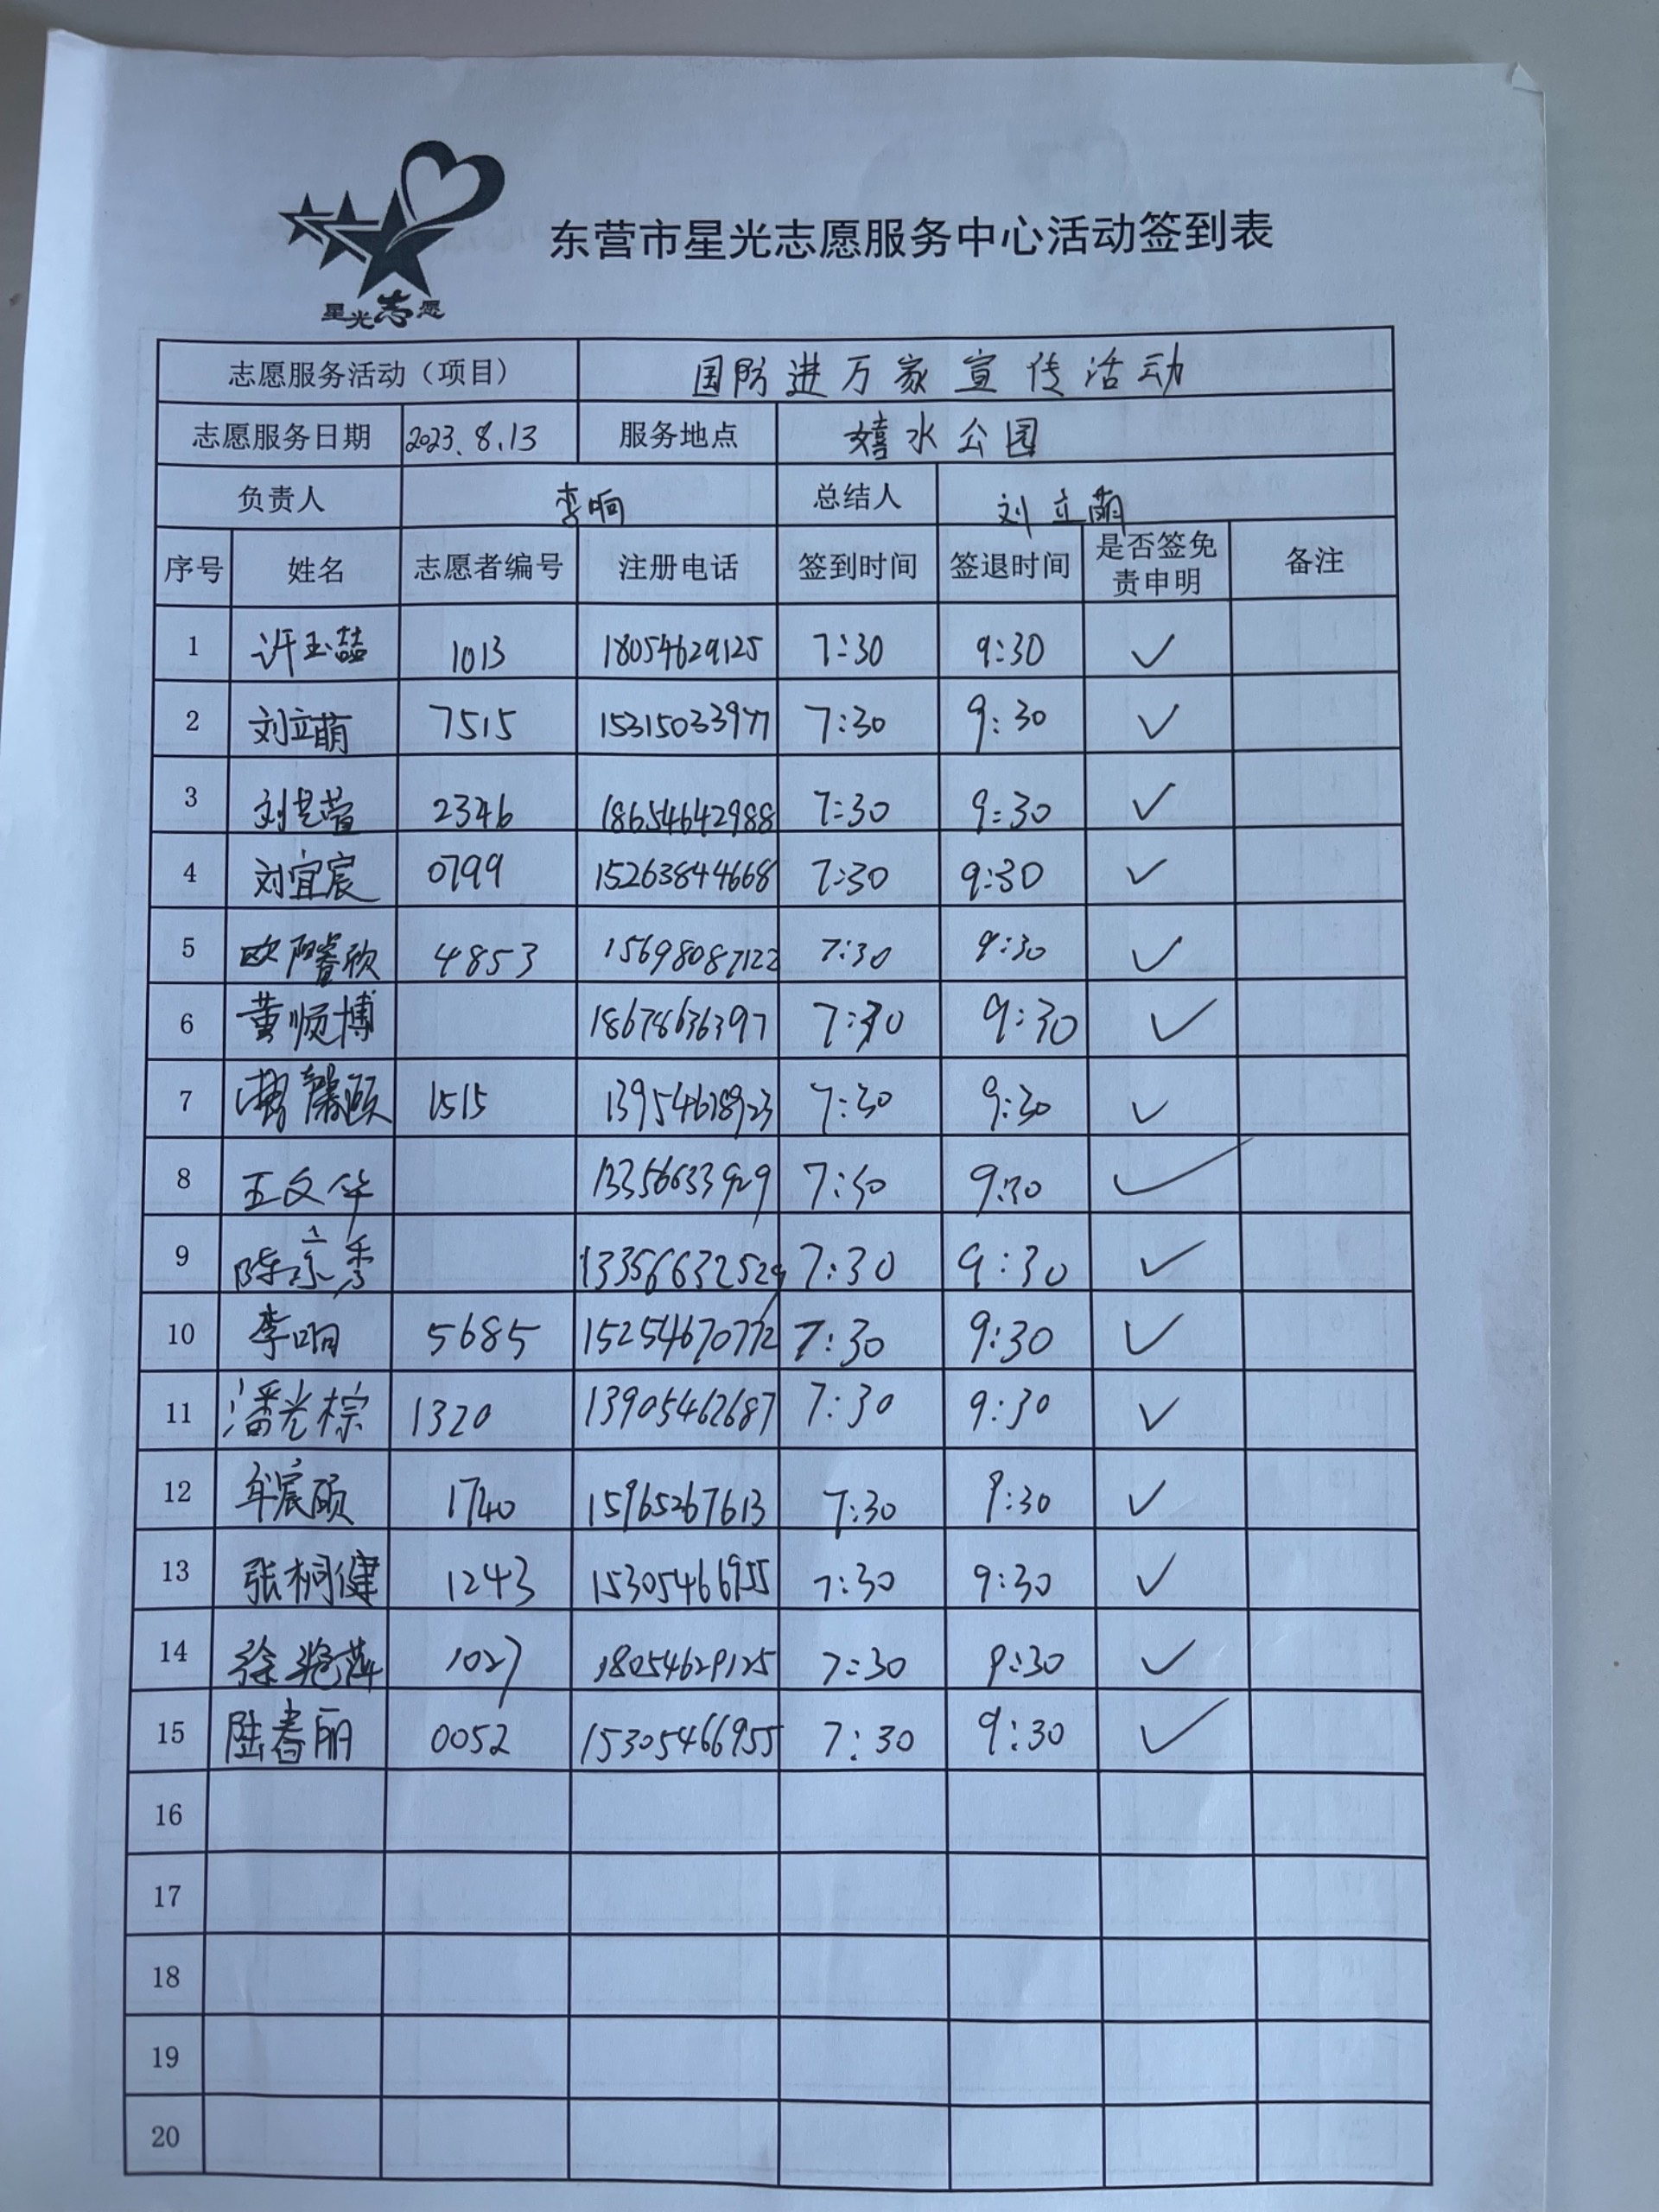 东营市星光志愿服务中心活动签到表
星光志愿
志愿服务活动（项目） 国防进万家宣传活动
志愿服务日期 2023.8.13 服务地点 嬉水公园
负责人 李响 总结人 刘立萌
序号 姓名 志愿者编号 注册电话 签到时间 签退时间 是否签免责申明 备注
1 许玉喆 1013 18054629125 7:30 9:30 ✓
2 刘立萌 7515 15315033977 7:30 9:30 ✓
3 刘 2346 18654642988 7:30 9:30 ✓
4 刘宜宸 0799 15263844668 7:30 9:30 ✓
5 欧阳睿欣 4853 15698087122 7:30 9:30 ✓
6 黄顺博 18678636397 7:30 9:30 ✓
7 1515 13954678923 7:30 9:30 ✓
8 王文华 13356633929 7:30 9:30 ✓
9 陈京秀 13356632529 7:30 9:30 ✓
10 李响 5685 15254670772 7:30 9:30 ✓
11 潘光棕 1320 13905462687 7:30 9:30 ✓
12 牟宸硕 1740 15965267613 7:30 9:30 ✓
13 张桐健 1243 15305466955 7:30 9:30 ✓
14 徐艳萍 1027 18054629125 7:30 9:30 ✓
15 陆春丽 0052 15305466955 7:30 9:30 ✓
16
17
18
19
20